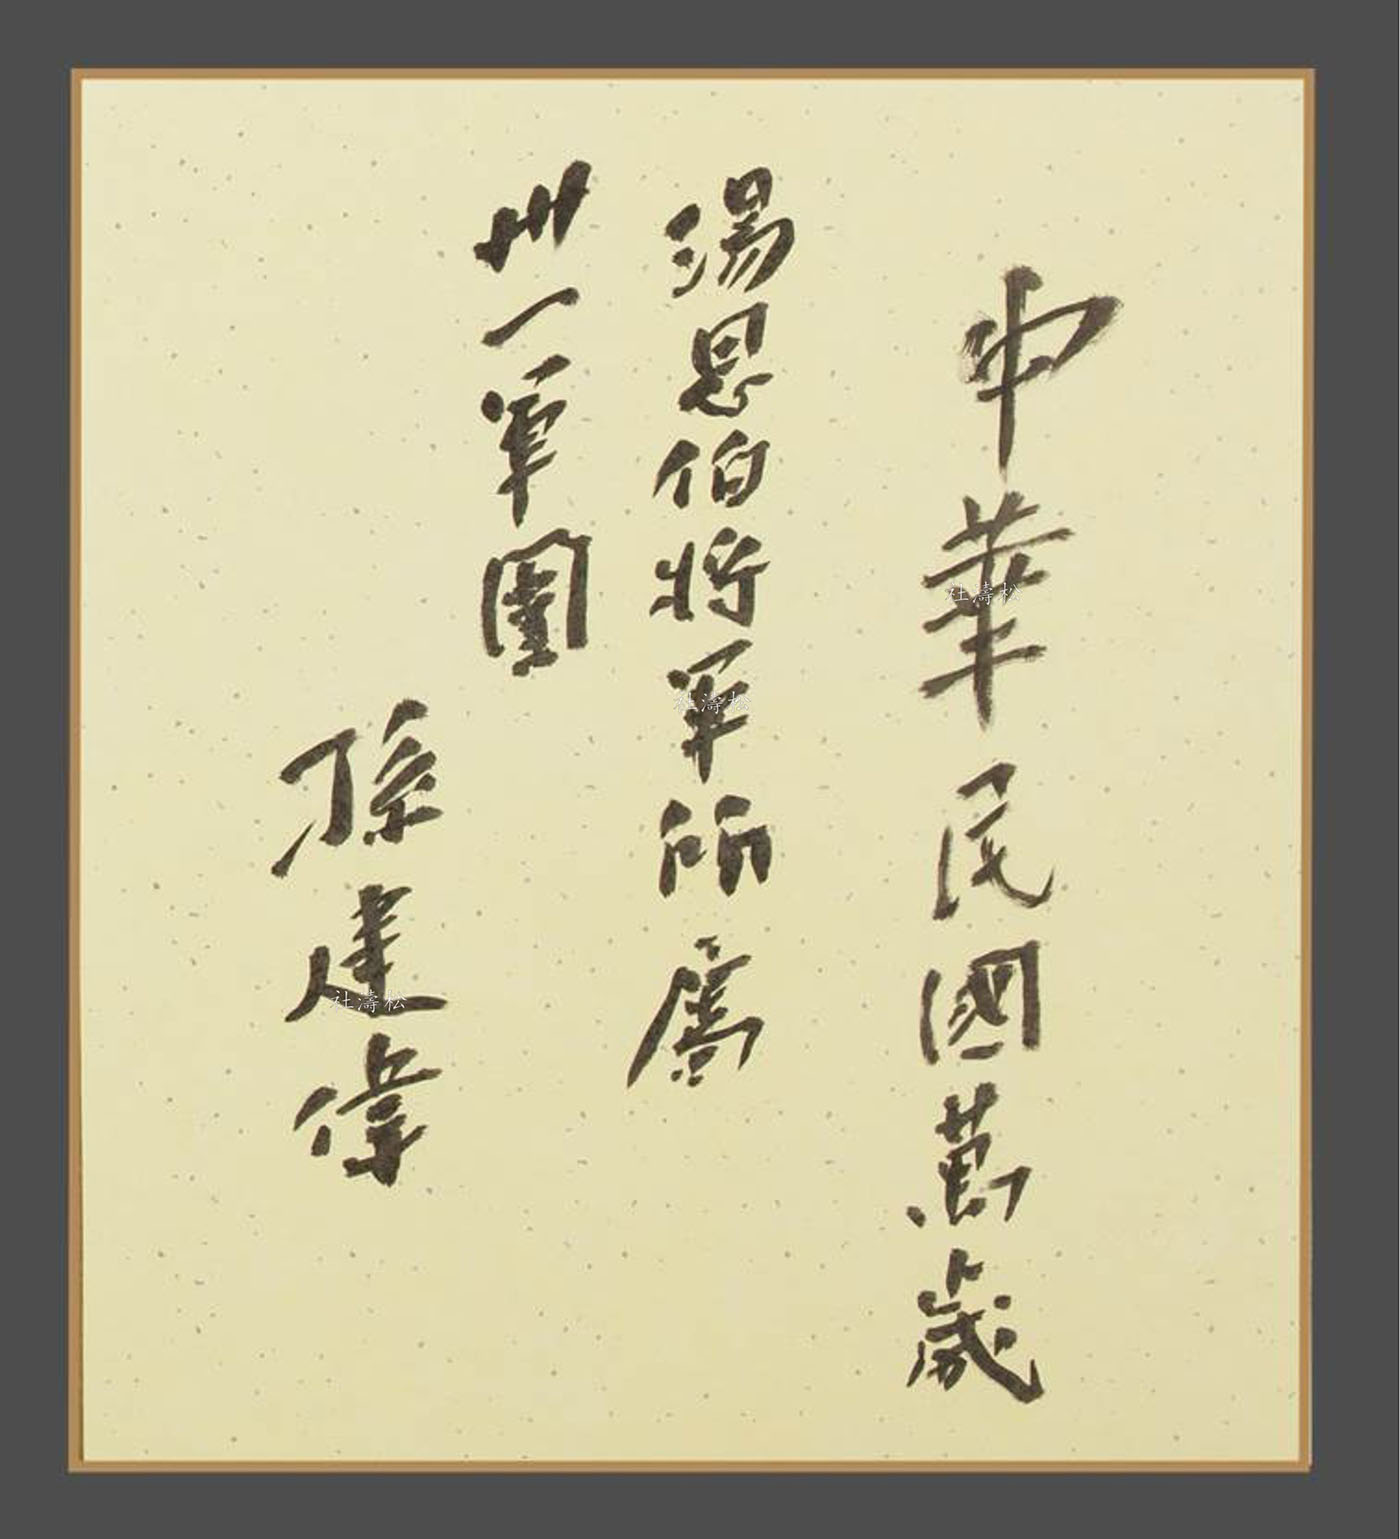 中華民國萬歲
湯恩伯將軍所屬
卅一軍團
孫建偉
社濤松
社濤松
社濤松